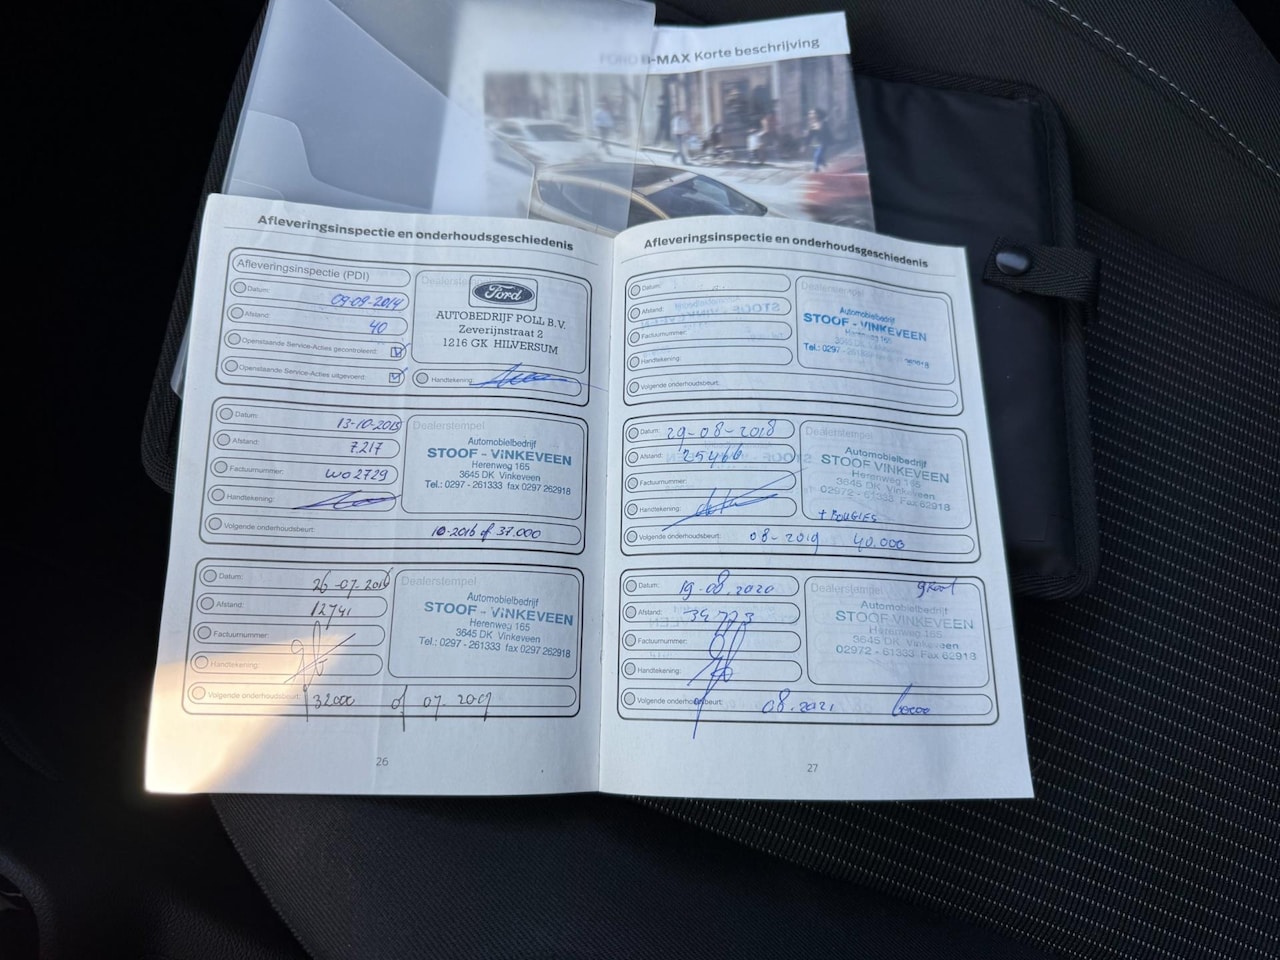 B-MAX Korte beschrijving
Afleveringsinspectie en onderhoudsgeschiedenis
Afleveringsinspectie (PDI)
Datum: 09-09-2014
Afstand: 40
Openstaande Service-Acties gecontroleerd:
Openstaande Service-Acties uitgevoerd:
Dealerstempel
Ford
AUTOBEDRIJF POLL B.V.
Zeverijnstraat 2
1216 GK HILVERSUM
Handtekening:
Datum: 13-10-2015
Afstand: 7.217
Factuurnummer: WO2729
Handtekening:
Volgende onderhoudsbeurt: 10-2016 of 37.000
Dealerstempel
Automobielbedrijf
STOOF - VINKEVEEN
Herenweg 165
3645 DK Vinkeveen
Tel.: 0297 - 261333 fax 0297 262918
Datum: 26-07-2016
Afstand: 12741
Factuurnummer:
Handtekening:
Volgende onderhoudsbeurt: 32000 of 07.2017
Dealerstempel
Automobielbedrijf
STOOF - VINKEVEEN
Herenweg 165
3645 DK Vinkeveen
Tel.: 0297 - 261333 fax 0297 262918
26
Afleveringsinspectie en onderhoudsgeschiedenis
Datum:
Afstand:
Factuurnummer:
Handtekening:
Volgende onderhoudsbeurt:
Dealerstempel
Automobielbedrijf
STOOF - VINKEVEEN
Herenweg 165
Tel.: 0297
Datum: 29-08-2018
Afstand: 25466
Factuurnummer:
Handtekening:
Volgende onderhoudsbeurt: 08-2019 40.000
Dealerstempel
Automobielbedrijf
STOOF VINKEVEEN
Herenweg 165
3645 DK Vinkeveen
02972 - 61333 Fax 62918
+ BOUGIES
Datum: 19-08-2020
Afstand: 34773
Factuurnummer:
Handtekening:
Volgende onderhoudsbeurt: 08.2021
Dealerstempel
groot
Automobielbedrijf
STOOF VINKEVEEN
Herenweg 165
3645 DK Vinkeveen
02972 - 61333 Fax 62918
27